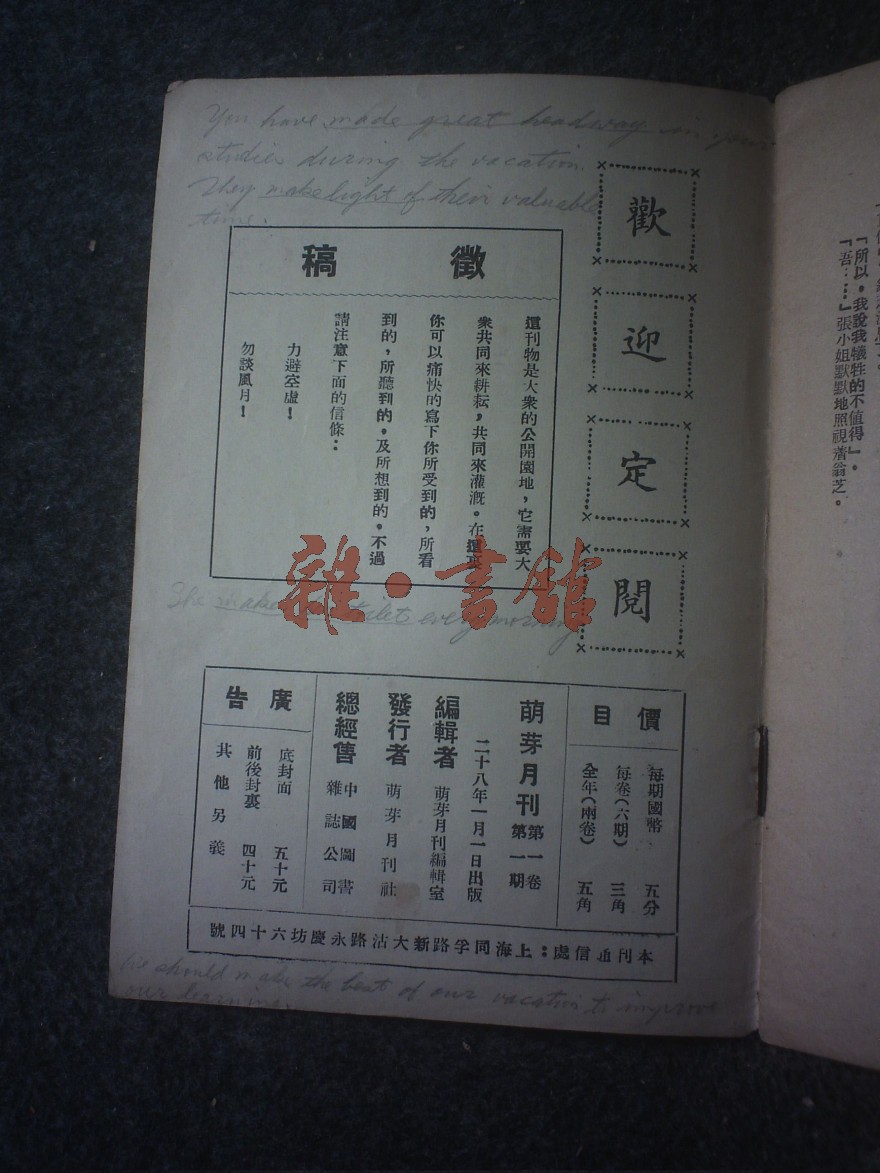 You have made great headway in your
studies during the vacation.
They make light of their valuable
time.
歡迎定閱
徵稿
這刊物是大衆的公開園地，它需要大
衆共同來耕耘，共同來灌溉。在這裏
你可以痛快的寫下你所受到的，所看
到的，所聽到的。及所想到的。不過
請注意下面的信條：
力避空虛！
勿談風月！
雜·書館
She makes toilet every morning
價目
每期國幣 五分
每卷（六期） 三角
全年（兩卷） 五角
萌芽月刊 第一卷第一期
二十八年一月一日出版
編輯者 萌芽月刊編輯室
發行者 萌芽月刊社
總經售 中國圖書雜誌公司
廣告
底封面 五十元
前後封裏 四十元
其他另議
本刊通信處：上海同孚路新大沽路永慶坊六十四號
We should make the best of our vacation to improve
our learning.
「所以，我說我犧牲的不值得」。
「吾……」張小姐默默地照視着翁芝。